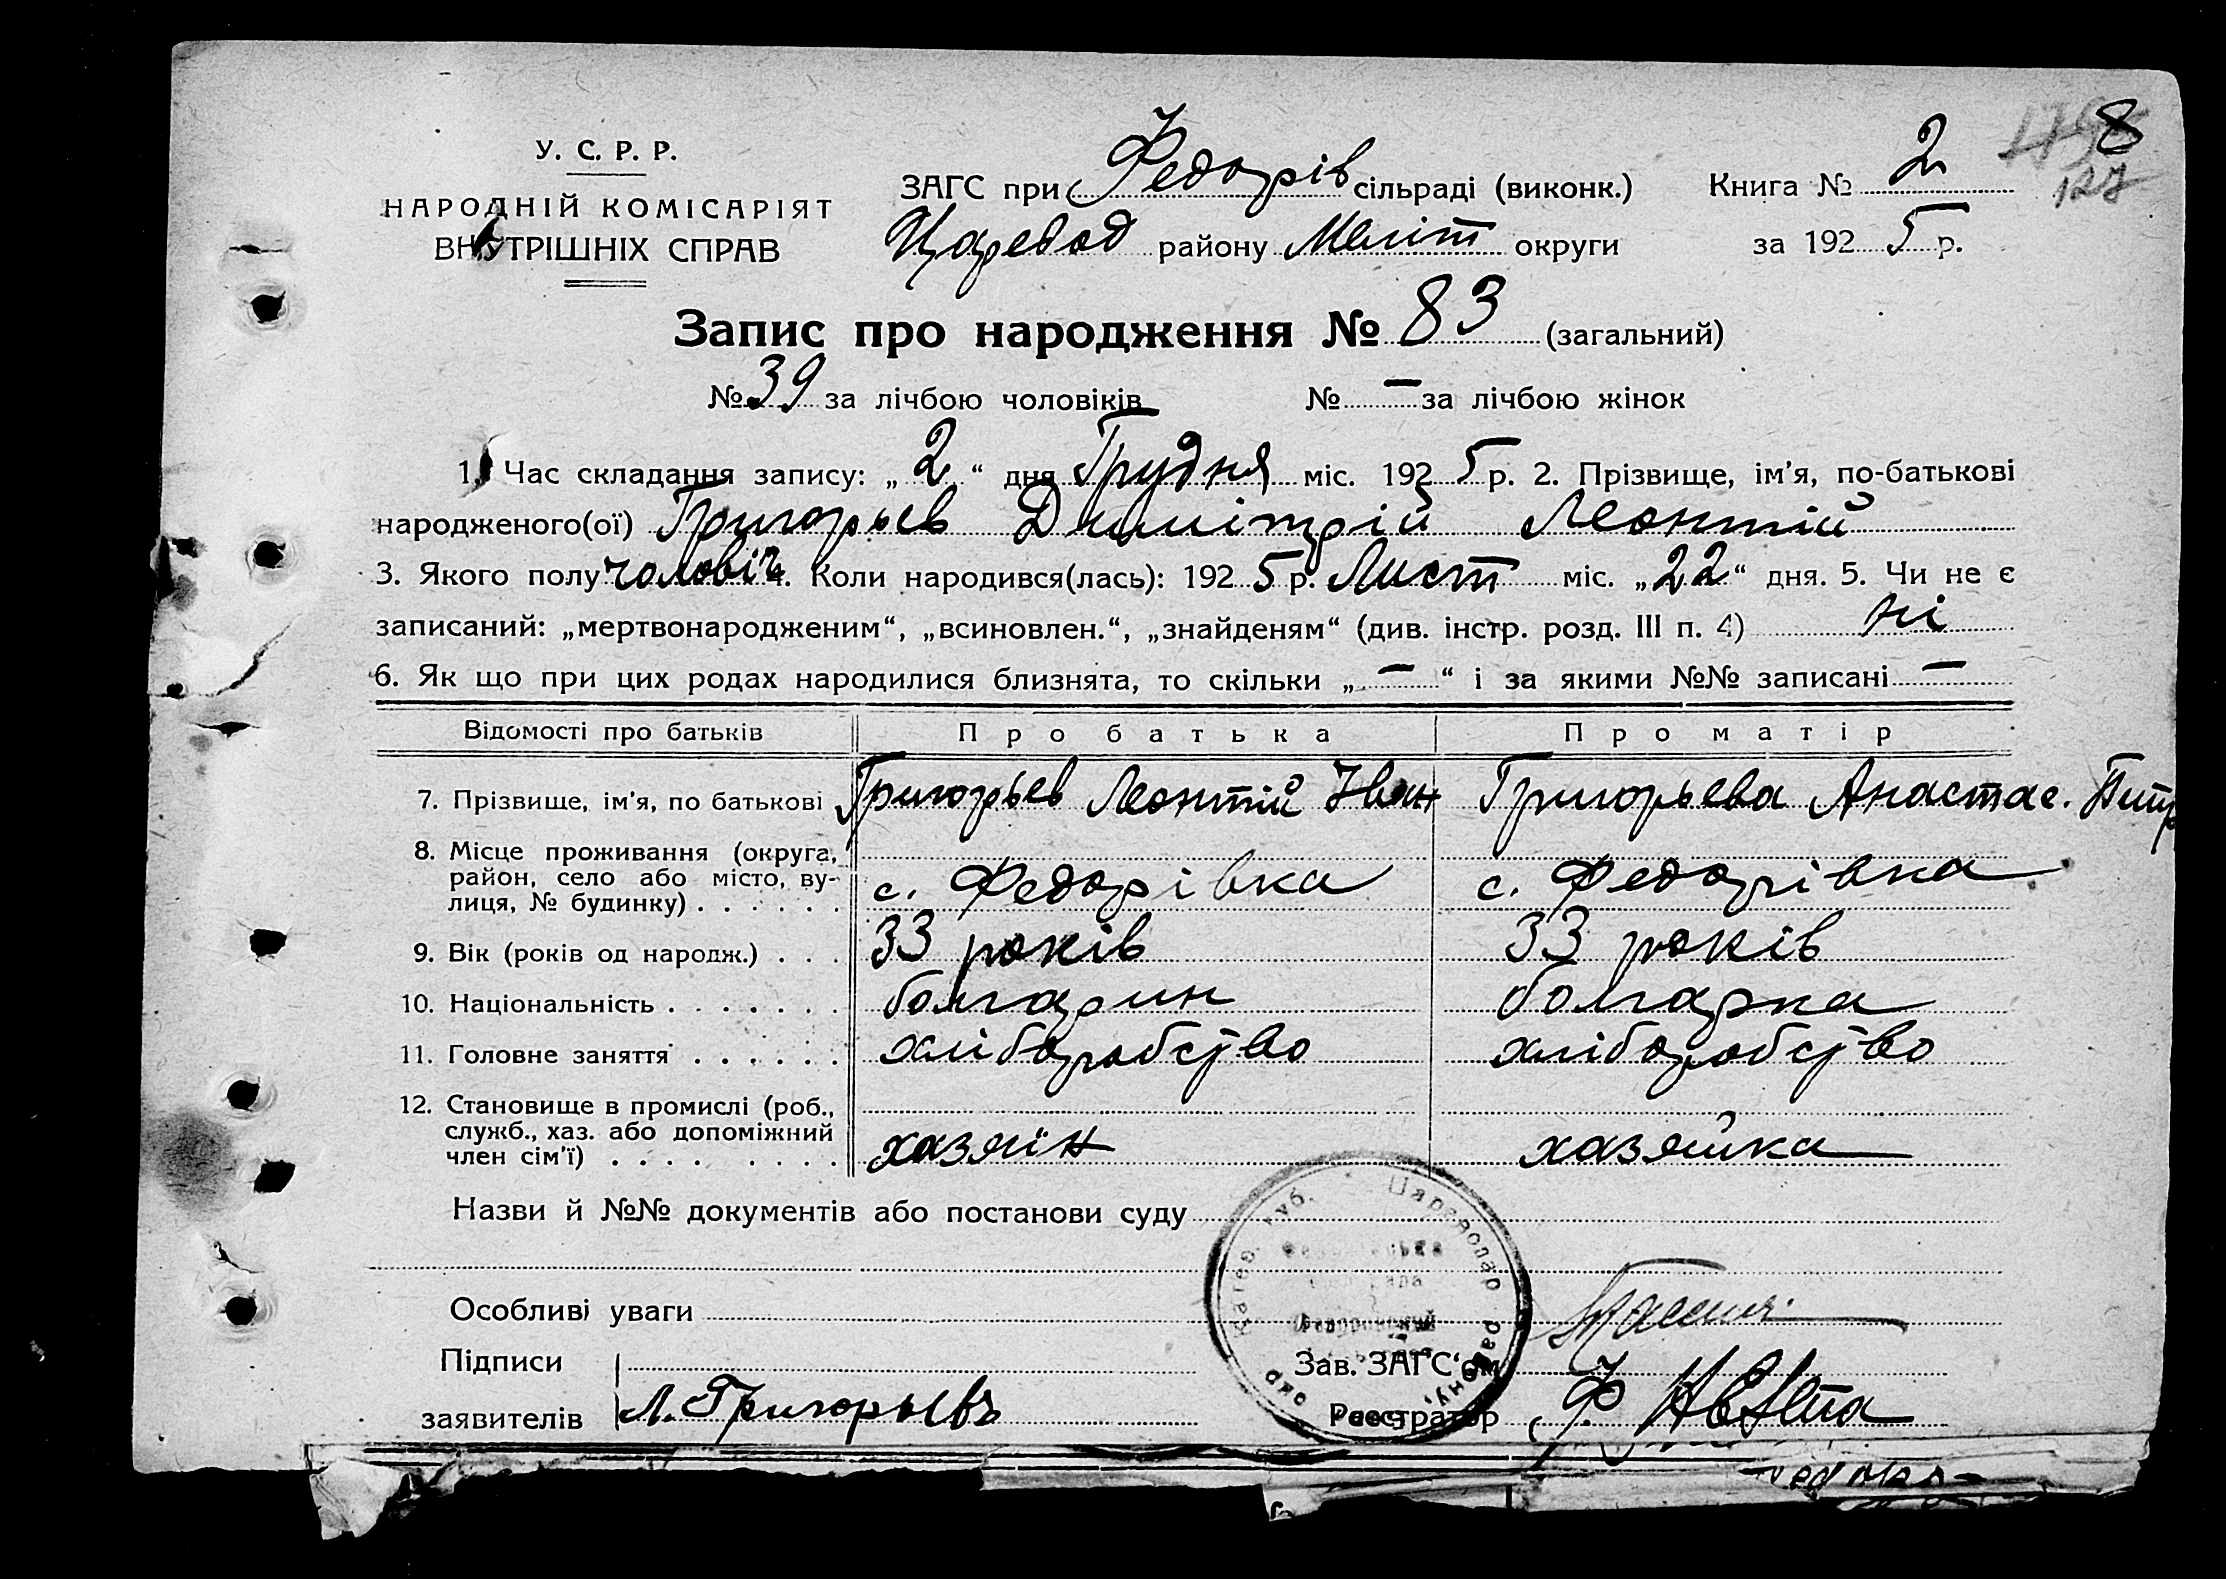 8
127
У. С. Р. Р.
НАРОДНІЙ КОМІСАРІЯТ
ВНУТРІШНІХ СПРАВ
ЗАГС при Федорів сільраді (виконк.) Книга № 2
Царевод району Меліт округи за 1925 р.
Запис про народження № 83 (загальний)
№ 39 за лічбою чоловіків № — за лічбою жінок
1. Час складання запису: „2“ дня Грудня міс. 1925 р. 2. Прізвище, ім'я, по-батькові
народженого(ої) Григорьев Димітрій Леонтій
3. Якого полу чоловіч 4. Коли народився(лась): 1925 р. Лист міс. „22“ дня. 5. Чи не є
записаний: „мертвонародженим“, „всиновлен.“, „знайденям“ (див. інстр. розд. III п. 4) ні
6. Як що при цих родах народилися близнята, то скільки „—“ і за якими №№ записані —
Відомості про батьків Про батька Про матір
7. Прізвище, ім'я, по батькові Григорьев Леонтій Іван Григорьева Анастас. Питр
8. Місце проживання (округа, район, село або місто, вулиця, № будинку) . . . . . . с. Федорівка с. Федорівка
9. Вік (років од народж.) . . . 33 років 33 років
10. Національність . . . . . . . болгарин болгарка
11. Головне заняття . . . . . . хліборобство хліборобство
12. Становище в промислі (роб., служб., хаз. або допоміжний член сім'ї) . . . . . . . . хазяїн хазяйка
Назви й №№ документів або постанови суду
Особливі уваги
Підписи
заявителів Л. Григорьевъ
Зав. ЗАГС'ом
Реєстратор Ф.
Цареводар району,